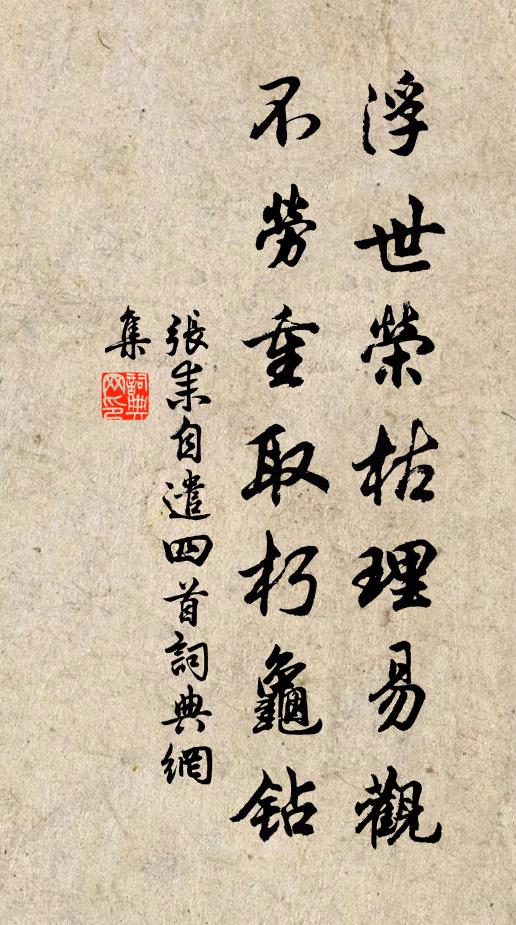 浮世榮枯理易觀
不勞重取朽龜鉆
張耒自遣四首詞典網
集
詞典網印